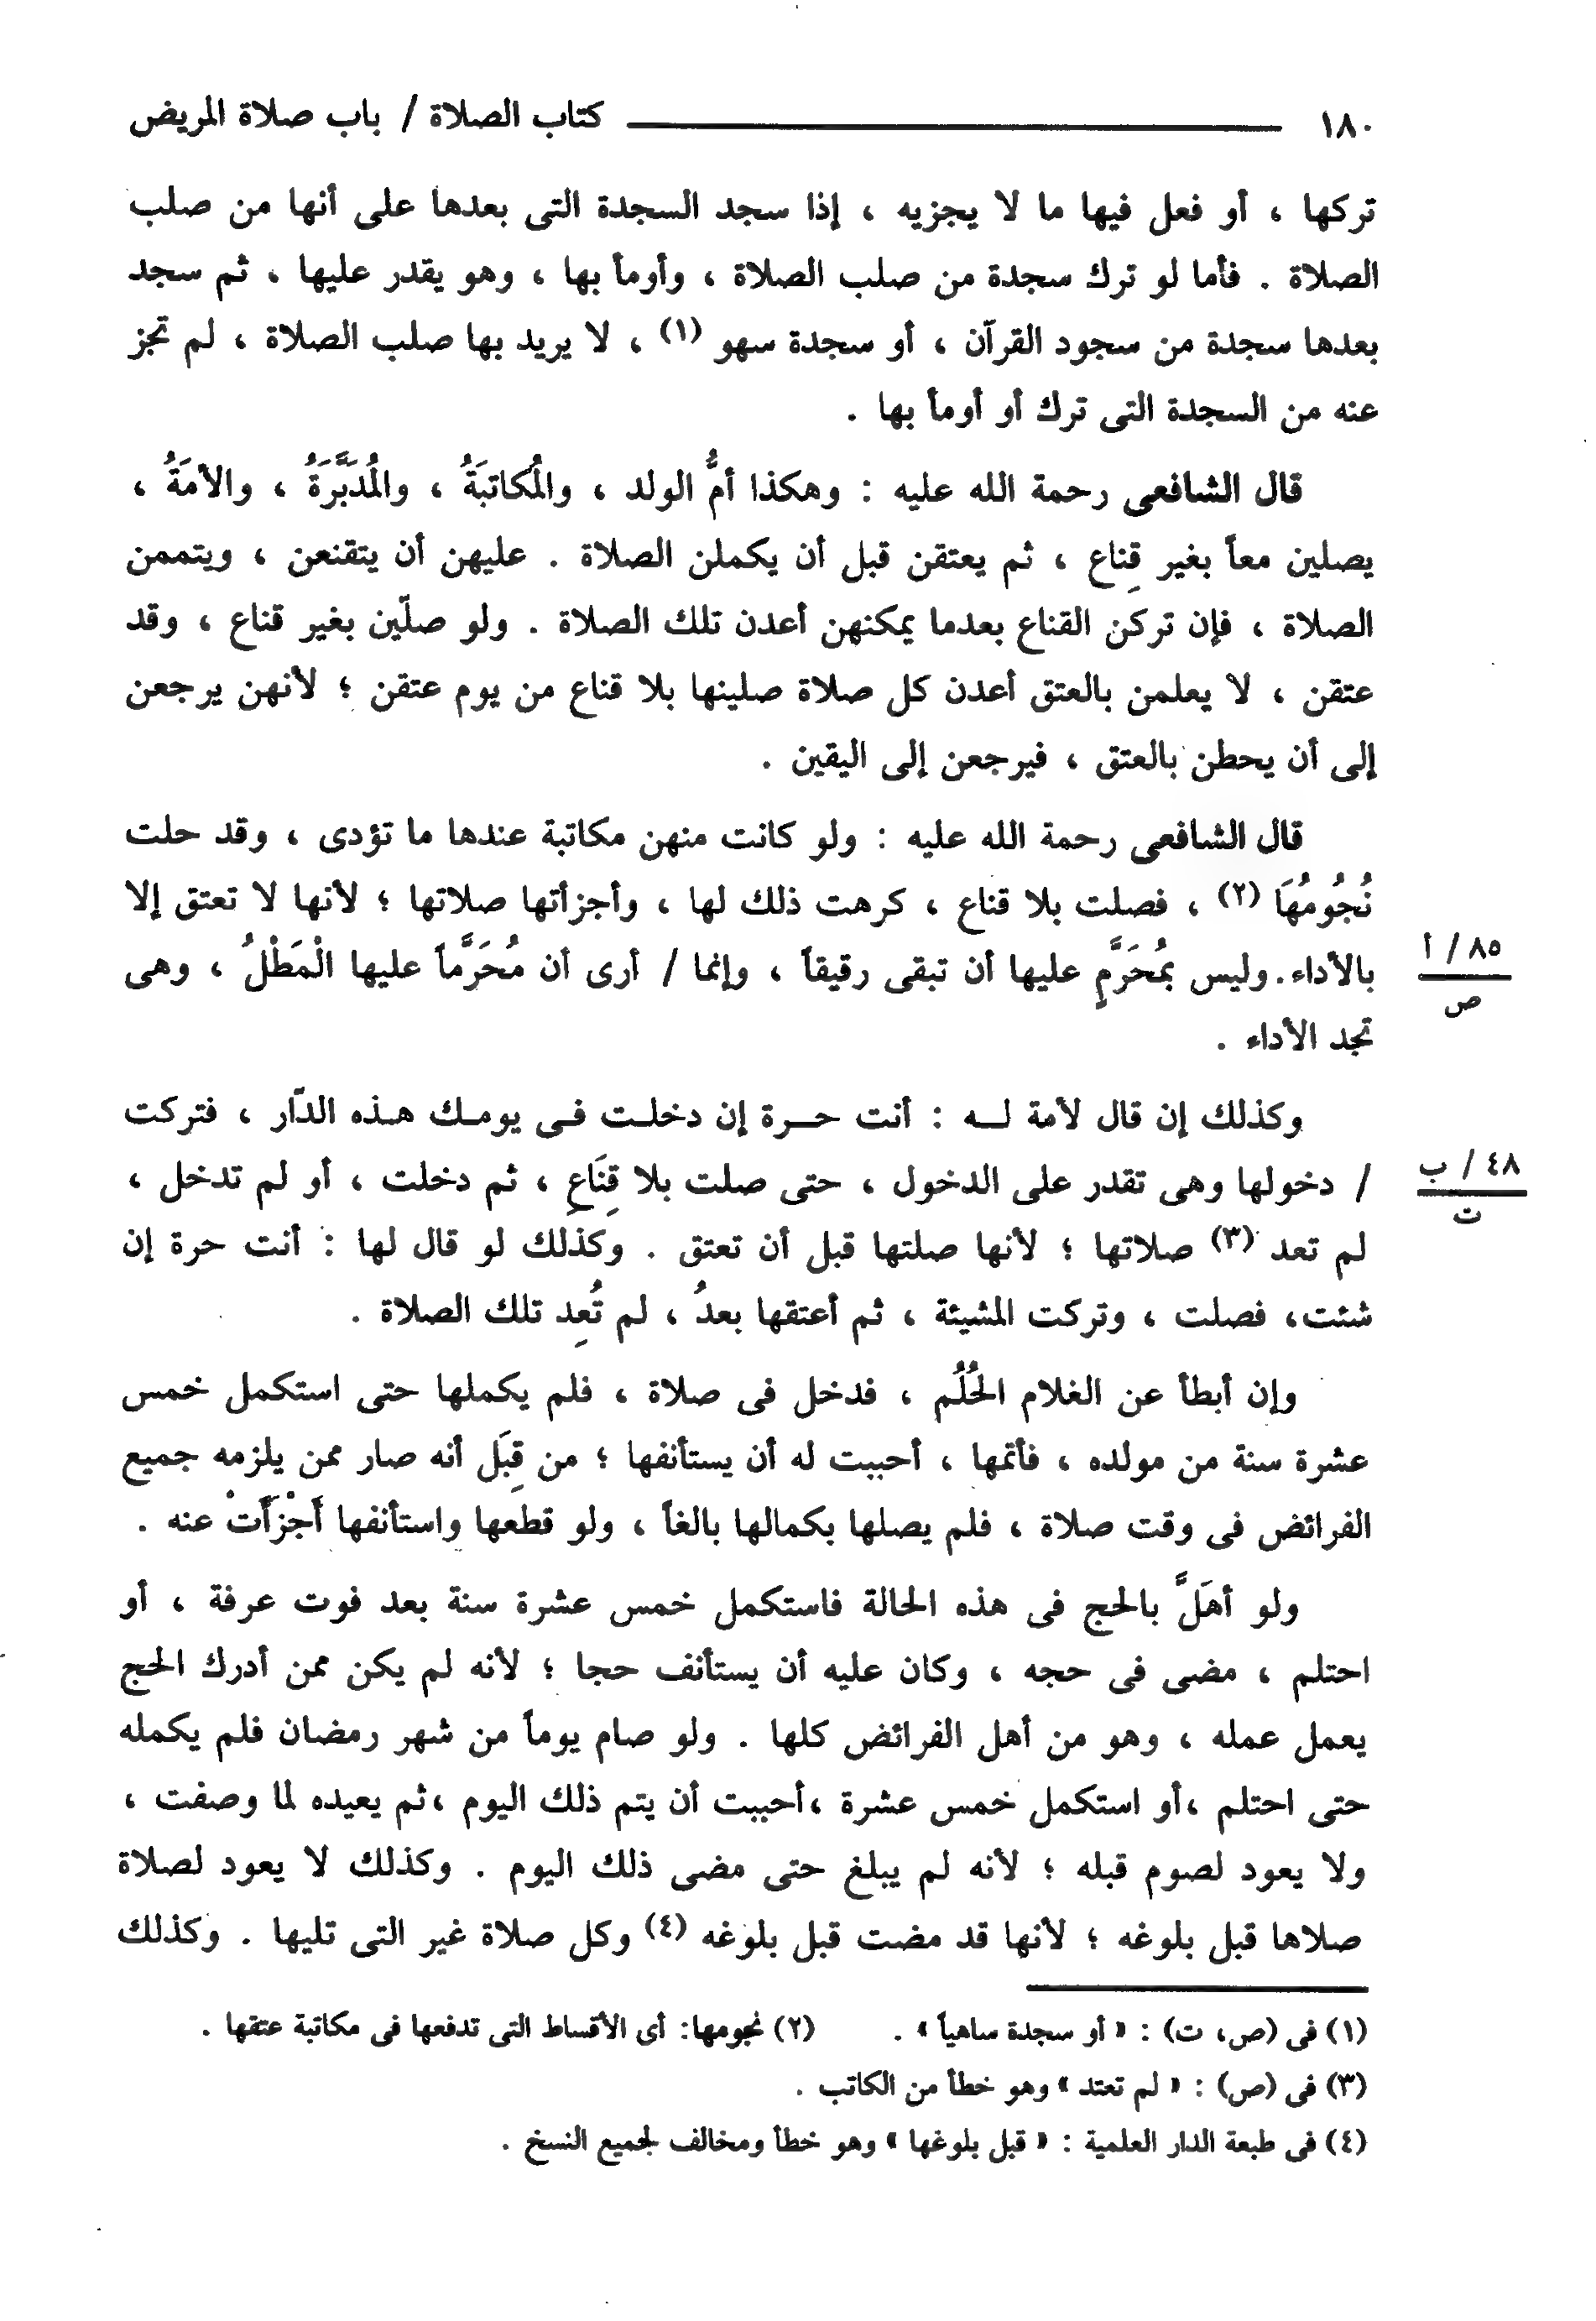 ١٨٠ كتاب الصلاة / باب صلاة المريض
تركها ، أو فعل فيها ما لا يجزيه ، إذا سجد السجدة التى بعدها على أنها من صلب
الصلاة . فأما لو ترك سجدة من صلب الصلاة ، وأومأ بها ، وهو يقدر عليها ، ثم سجد
بعدها سجدة من سجود القرآن ، أو سجدة سهو (١) ، لا يريد بها صلب الصلاة ، لم تجز
عنه من السجدة التى ترك أو أومأ بها .
قال الشافعى رحمة الله عليه : وهكذا أمُّ الولد ، والمُكاتبَةُ ، والمُدَبَّرَةُ ، والأمَةُ ،
يصلين معاً بغير قِناع ، ثم يعتقن قبل أن يكملن الصلاة . عليهن أن يتقنعن ، ويتممن
الصلاة ، فإن تركن القناع بعدما يمكنهن أعدن تلك الصلاة . ولو صلّين بغير قناع ، وقد
عتقن ، لا يعلمن بالعتق أعدن كل صلاة صلينها بلا قناع من يوم عتقن ؛ لأنهن يرجعن
إلى أن يحطن بالعتق ، فيرجعن إلى اليقين .
قال الشافعى رحمة الله عليه : ولو كانت منهن مكاتبة عندها ما تؤدى ، وقد حلت
نُجُومُهَا (٢) ، فصلت بلا قناع ، كرهت ذلك لها ، وأجزأتها صلاتها ؛ لأنها لا تعتق إلا
بالأداء. وليس بمُحَرَّمٍ عليها أن تبقى رقيقاً ، وإنما / أرى أن مُحَرَّماً عليها الْمَطْلُ ، وهى
٨٥ / أ
ص
تجد الأداء .
وكذلك إن قال لأمة لـــه : أنت حـــرة إن دخلـت فـى يومـك هـذه الدّار ، فتركت
/ دخولها وهى تقدر على الدخول ، حتى صلت بلا قِنَاعٍ ، ثم دخلت ، أو لم تدخل ،
٤٨ / ب
ت
لم تعد (٣) صلاتها ؛ لأنها صلتها قبل أن تعتق . وكذلك لو قال لها : أنت حرة إن
شئت، فصلت ، وتركت المشيئة ، ثم أعتقها بعدُ ، لم تُعِد تلك الصلاة .
وإن أبطأ عن الغلام الحُلُم ، فدخل فى صلاة ، فلم يكملها حتى استكمل خمس
عشرة سنة من مولده ، فأتمها ، أحببت له أن يستأنفها ؛ من قِبَل أنه صار ممن يلزمه جميع
الفرائض فى وقت صلاة ، فلم يصلها بكمالها بالغاً ، ولو قطعها واستأنفها أَجْزَأَتْ عنه .
ولو أهَلَّ بالحج فى هذه الحالة فاستكمل خمس عشرة سنة بعد فوت عرفة ، أو
احتلم ، مضى فى حجه ، وكان عليه أن يستأنف حجا ؛ لأنه لم يكن ممن أدرك الحج
يعمل عمله ، وهو من أهل الفرائض كلها . ولو صام يوماً من شهر رمضان فلم يكمله
حتى احتلم ،أو استكمل خمس عشرة ،أحببت أن يتم ذلك اليوم ،ثم يعيده لما وصفت ،
ولا يعود لصوم قبله ؛ لأنه لم يبلغ حتى مضى ذلك اليوم . وكذلك لا يعود لصلاة
صلاها قبل بلوغه ؛ لأنها قد مضت قبل بلوغه (٤) وكل صلاة غير التى تليها . وكذلك
(١) فى (ص، ت) : « أو سجدة ساهياً » . (٢) نجومها: أى الأقساط التى تدفعها فى مكاتبة عتقها .
(٣) فى (ص) : « لم تعتد » وهو خطأ من الكاتب .
(٤) فى طبعة الدار العلمية : « قبل بلوغها » وهو خطأ ومخالف لجميع النسخ .